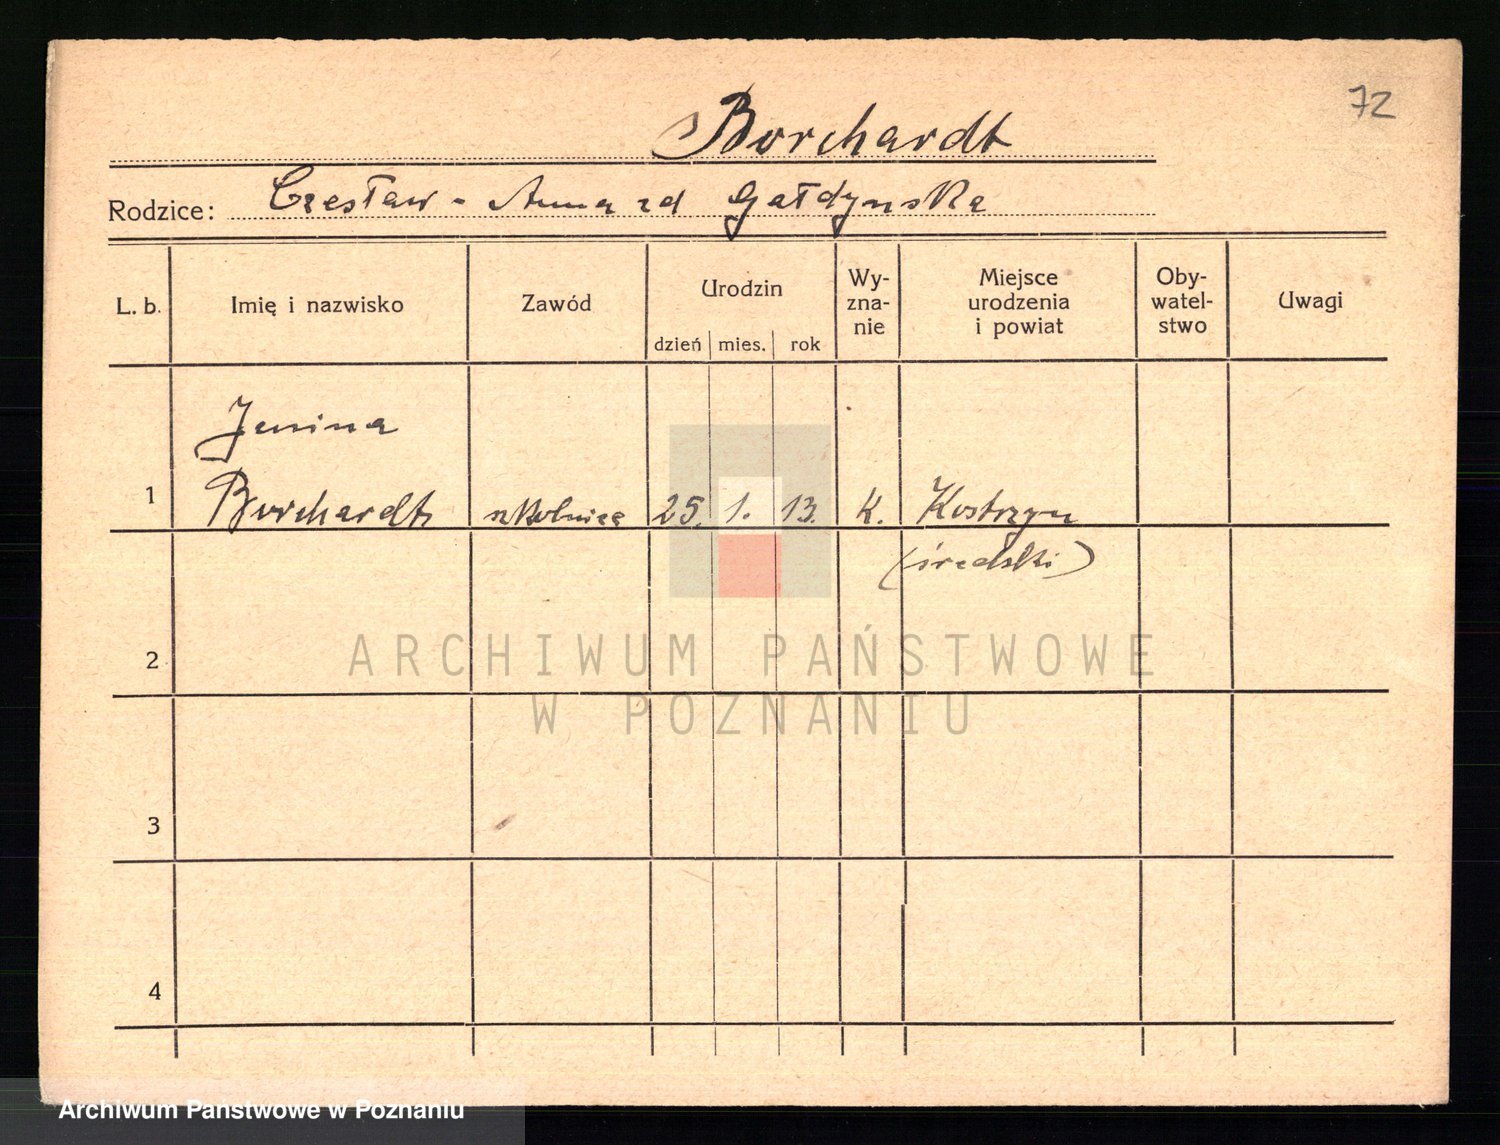 72
Borchardt
Rodzice: Czesław - Anna zd Gałdyńska
L. b. Imię i nazwisko Zawód Urodzin dzień mies. rok Wy-zna-nie Miejsce urodzenia i powiat Oby-watel-stwo Uwagi
Janina
1 Borchardt szkolnica 25. 1. 13. K. Kostrzyn
(średski)
2
ARCHIWUM PAŃSTWOWE
W POZNANIU
3
4
Archiwum Państwowe w Poznaniu